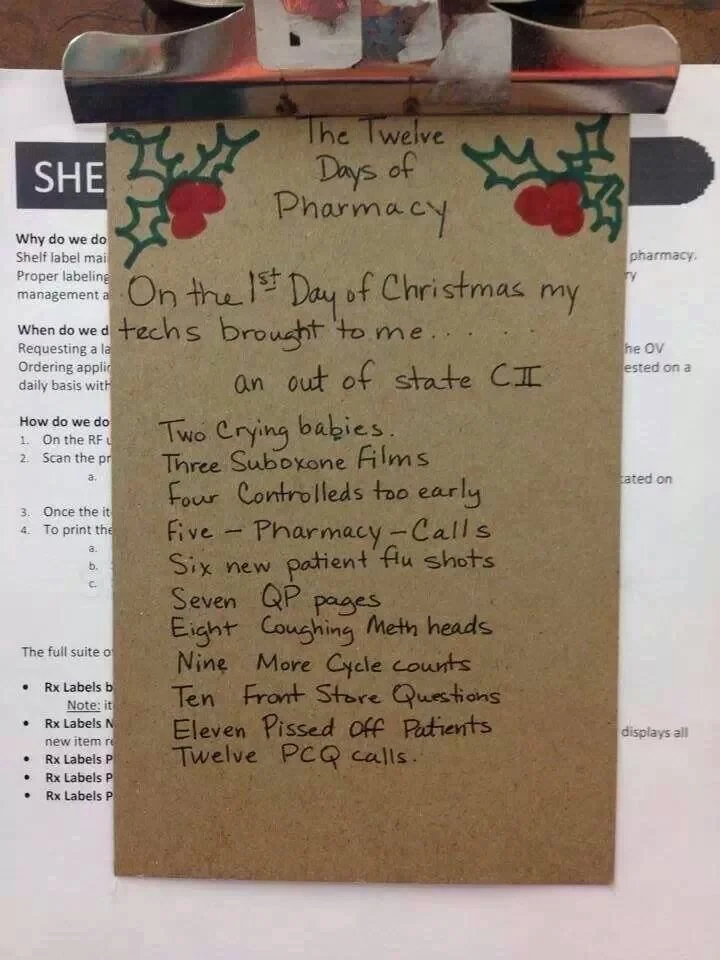 The Twelve
Days of
Pharmacy
On the 1st Day of Christmas my
techs brought to me......
an out of state CII
Two Crying babies.
Three Suboxone Films
Four Controlleds too early
Five - Pharmacy - Calls
Six new patient flu shots
Seven QP pages
Eight Coughing Meth heads
Nine More Cycle counts
Ten Front Store Questions
Eleven Pissed Off Patients
Twelve PCQ calls.
SHE
Why do we do
Shelf label mai
pharmacy.
Proper labeling
ry
management a
When do we d
Requesting a la
he OV
Ordering applic
ested on a
daily basis with
How do we do
1. On the RF u
2. Scan the pr
a.
cated on
3. Once the it
4. To print the
a.
b.
c.
The full suite o
• Rx Labels b
Note: it
• Rx Labels N
displays all
new item re
• Rx Labels P
• Rx Labels P
• Rx Labels P